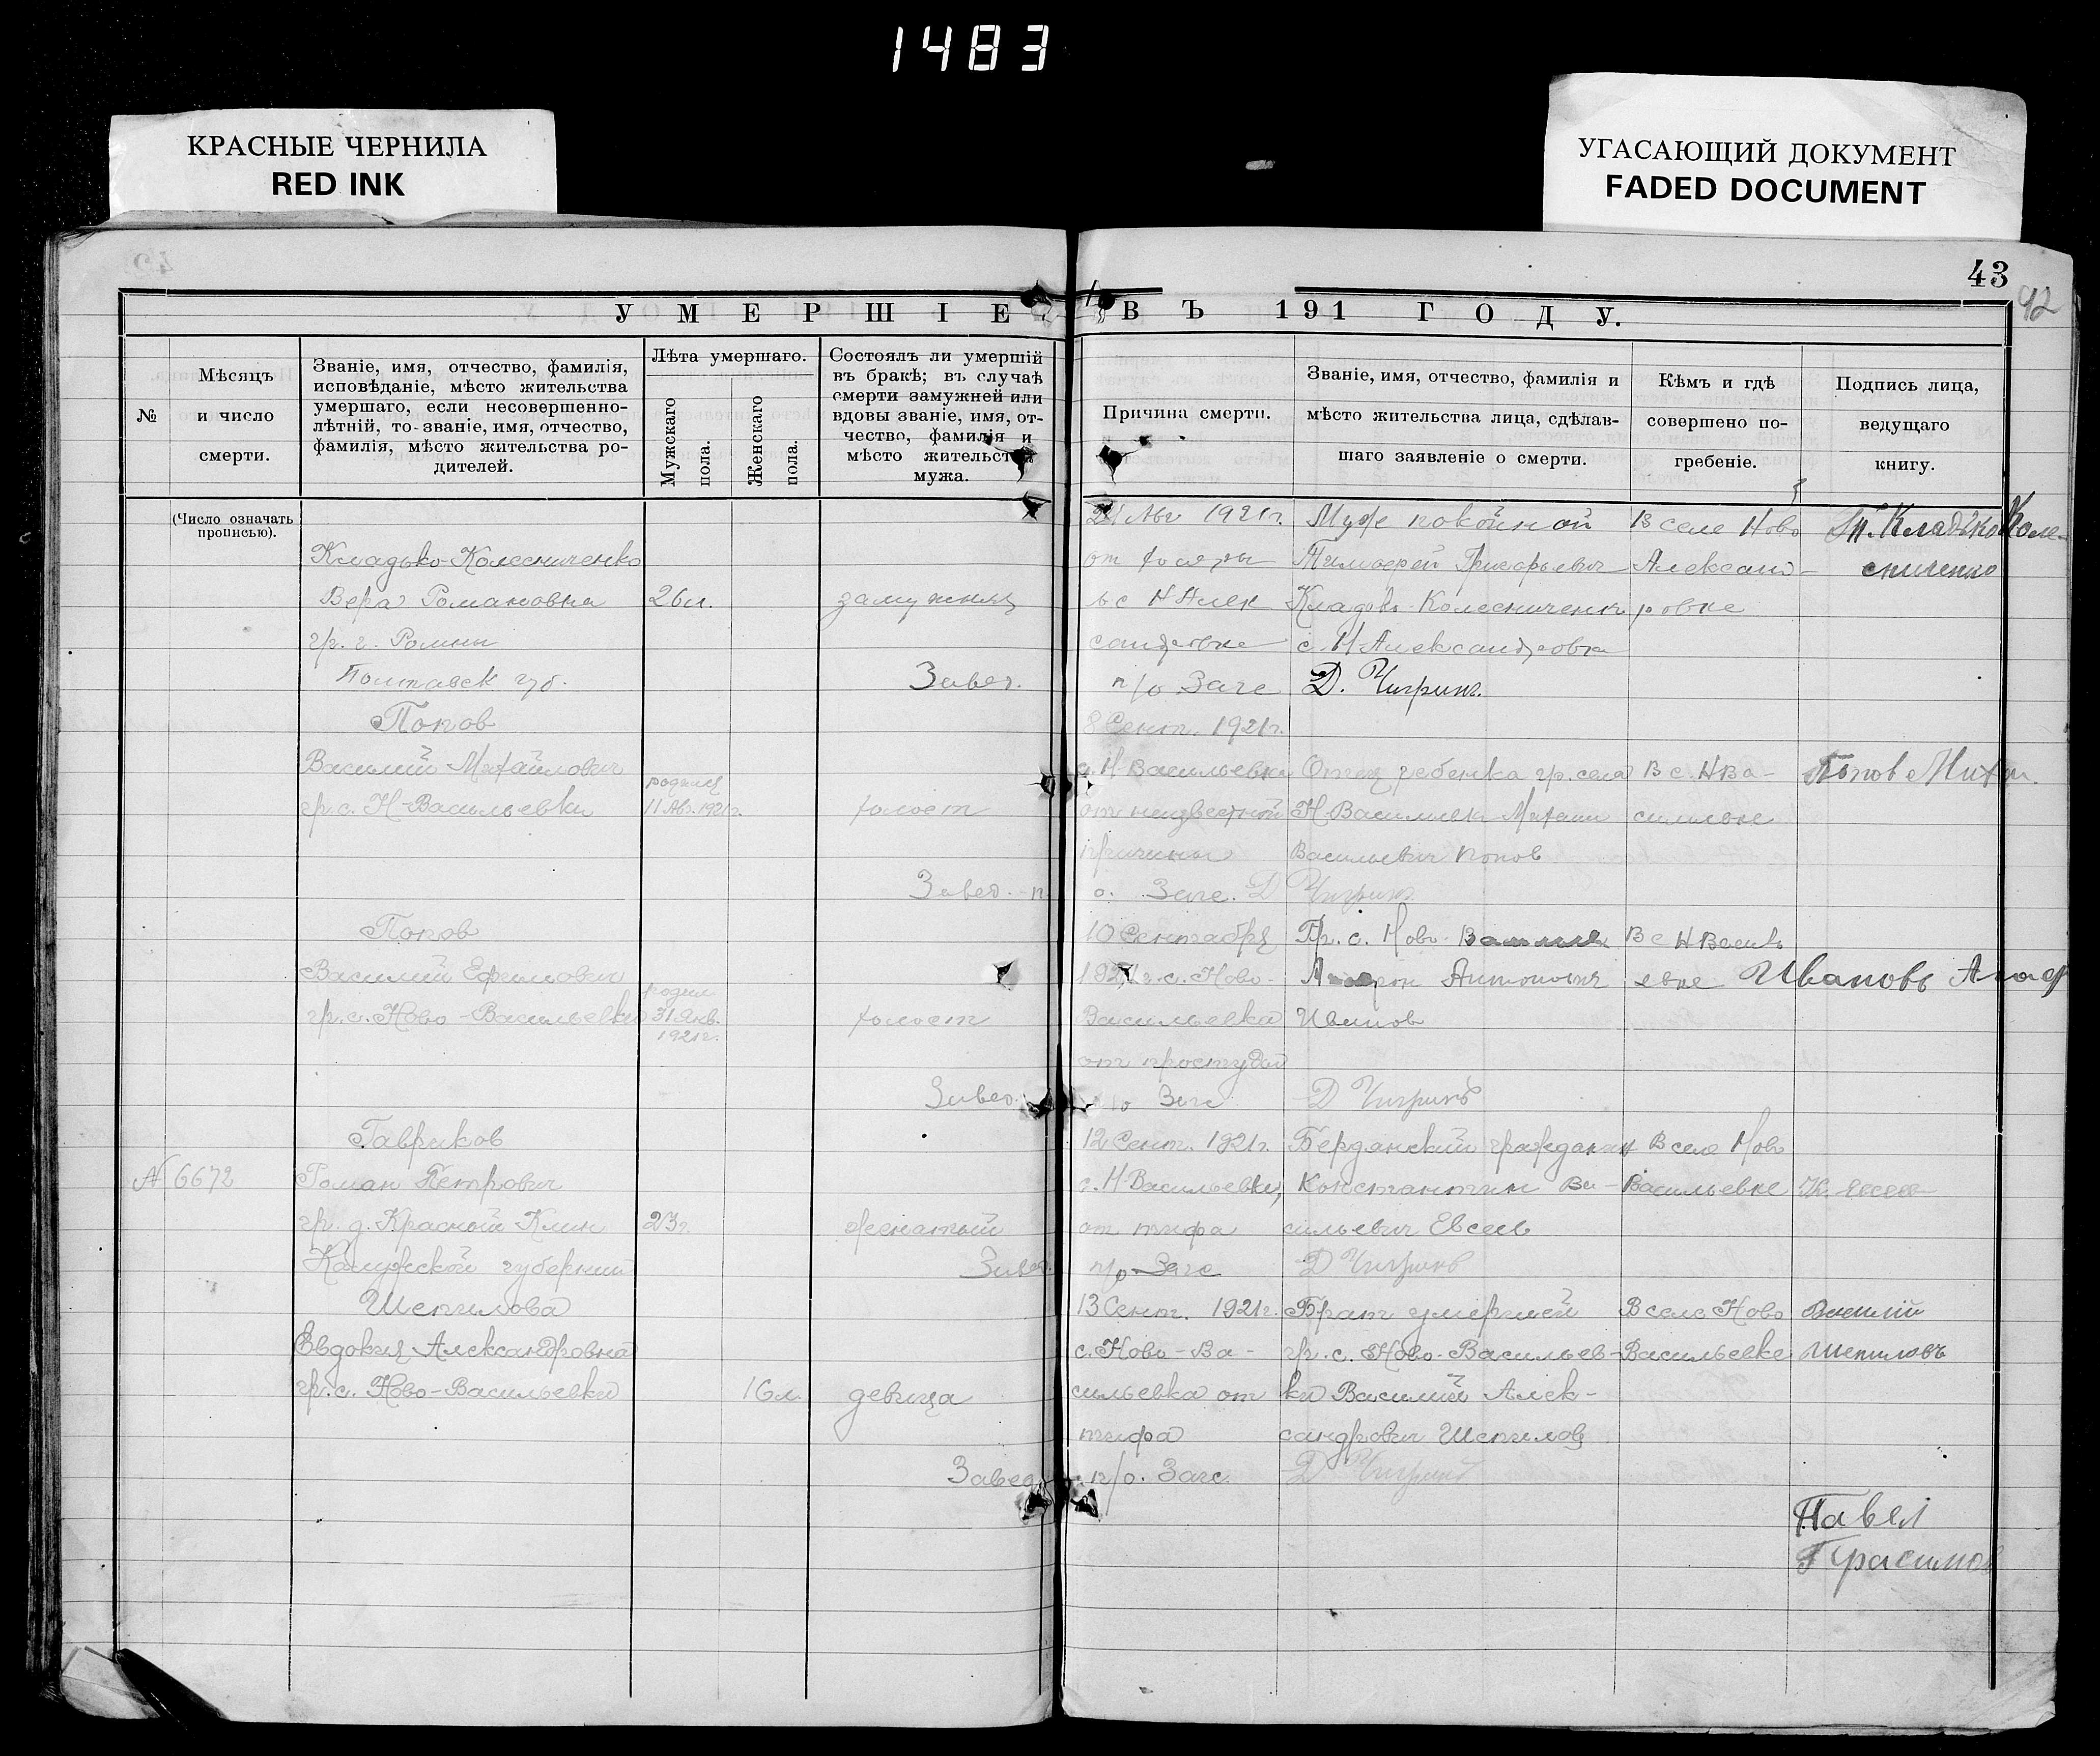 1483
КРАСНЫЕ ЧЕРНИЛА
RED INK
УГАСАЮЩИЙ ДОКУМЕНТ
FADED DOCUMENT
43
92
УМЕРШІЕ ВЪ 191 ГОДУ.
№
Мѣсяцъ
и число
смерти.
Званіе, имя, отчество, фамилія,
исповѣданіе, мѣсто жительства
умершаго, если несовершенно-
лѣтній, то-званіе, имя, отчество,
фамилія, мѣсто жительства ро-
дителей.
Лѣта умершаго.
Мужскаго
пола.
Женскаго
пола.
Состоялъ ли умершій
въ бракѣ; въ случаѣ
смерти замужней или
вдовы званіе, имя, от-
чество, фамилія и
мѣсто жительства
мужа.
Причина смерти.
Званіе, имя, отчество, фамилія и
мѣсто жительства лица, сдѣлав-
шаго заявленіе о смерти.
Кѣмъ и гдѣ
совершено по-
гребеніе.
Подпись лица,
ведущаго
книгу.
(Число означать
прописью).
Авг 1921г. Муж покойной В селе Ново Кладько Коле-
Кладько-Колесниченко от холеры Тимофей Григорьевич Александ-
Вера Романовна 26л. замужняя Колесниченко ровке
гр. г. Ромны с. Н Александровка
Полтавск губ. Завед. п/о Загс Д. Чигрин
Попов 8 Сент. 1921г.
Василий Михайлович родился с. Н Васильевка Отец ребенка гр. села В с. Н Ва- Попов
гр. с. Н-Васильевки 11 Авг. 1921г. холост от неизвестной Н Васильевки Михаил сильевке
причины Васильевич Попов
Завед. п. о. Загс. Д Чигрин
Попов 10 Сентября Гр. с. Ново- В с Н Василь
Василий Ефимович 1921г. с. Ново- Антонович евке Иванов
гр. с. Ново-Васильевки 31 Янв. 1921г. холост Васильевка Иванов
от простуды
Завед. п/о Загс Д Чигрин
Гавриков 12 Сент. 1921г. Бердянский гражданин В селе Ново
№ 6672 Роман Петрович с. Н-Васильевке, Константин Ва- Васильевке
гр. д. Красный Клин 23г. женатый от тифа сильевич Евсеев
Калужской губернии Завед. п/о Загс Д Чигрин
Шепилова 13 Сент. 1921г. Брат умершей В селе Ново Василий
Евдокия Александровна с. Ново-Ва- гр. с. Ново-Васильев- Васильевке Шепиловъ
гр. с. Ново-Васильевки 16л. девица сильевка от ки Василий Алек-
тифа сандрович Шепилов
Завед. п/о. Загс. Д Чигрин
Павел